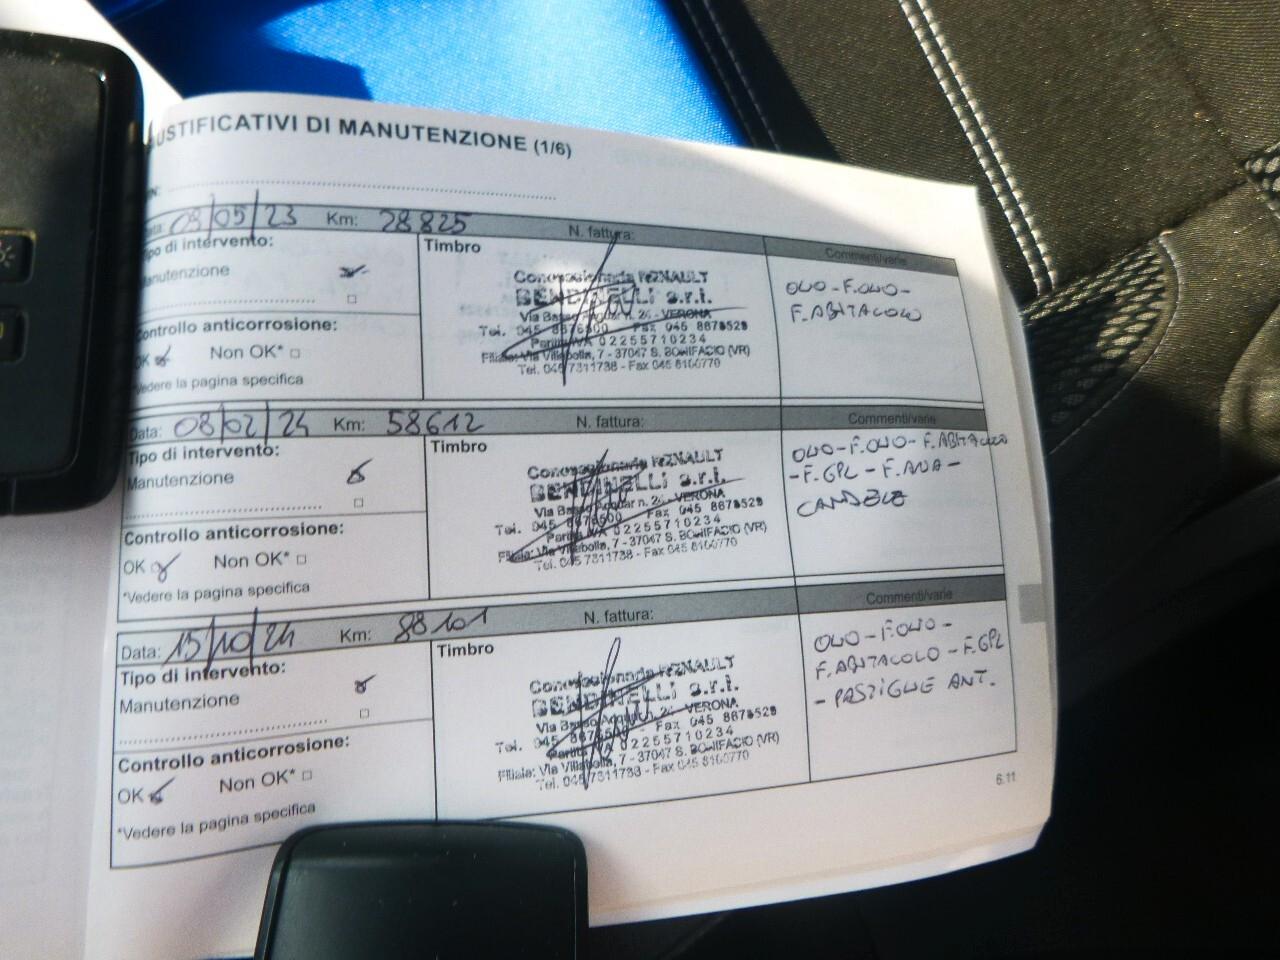 USTIFICATIVI DI MANUTENZIONE (1/6)
Data: 09/05/23 Km: 28825 N. fattura: Commenti/varie
Tipo di intervento:
Manutenzione
Controllo anticorrosione:
OK Non OK*
*Vedere la pagina specifica
Timbro
Concessionaria RENAULT
BENDINELLI s.r.l.
Via Basso Acquar n. 24 - VERONA
Tel. 045 8676500 Fax 045 8678529
Partita IVA 02255710234
Filiale: Via Villabolla, 7 - 37047 S. BONIFACIO (VR)
Tel. 045 7311738 - Fax 045 6100770
OLIO - F.OLIO -
F. ABITACOLO
Data: 08/02/24 Km: 58612 N. fattura: Commenti/varie
Tipo di intervento:
Manutenzione
Controllo anticorrosione:
OK Non OK*
*Vedere la pagina specifica
Timbro
Concessionaria RENAULT
BENDINELLI s.r.l.
Via Basso Acquar n. 24 - VERONA
Tel. 045 8676500 Fax 045 8678529
Partita IVA 02255710234
Filiale: Via Villabolla, 7 - 37047 S. BONIFACIO (VR)
Tel. 045 7311738 - Fax 045 6100770
OLIO - F.OLIO - F. ABITACOLO
- F. GPL - F. ARIA -
CANDELE
Data: 15/10/24 Km: 88101 N. fattura: Commenti/varie
Tipo di intervento:
Manutenzione
Controllo anticorrosione:
OK Non OK*
*Vedere la pagina specifica
Timbro
Concessionaria RENAULT
BENDINELLI s.r.l.
Via Basso Acquar n. 24 - VERONA
Tel. 045 8676500 Fax 045 8678529
Partita IVA 02255710234
Filiale: Via Villabolla, 7 - 37047 S. BONIFACIO (VR)
Tel. 045 7311738 - Fax 045 6100770
OLIO - F.OLIO -
F. ABITACOLO - F. GPL
- PASTIGLIE ANT.
6.11